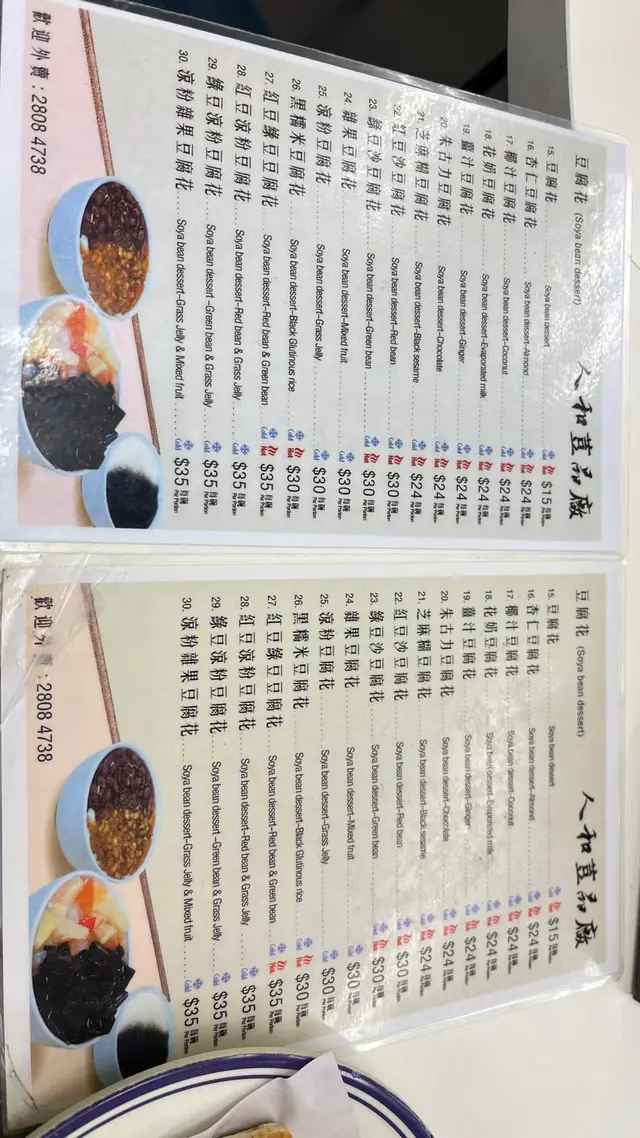 人和荳品廠
豆腐花 (Soya bean dessert)
15. 豆腐花 Soya bean dessert Cold Hot $15 每碗 Per Portion
16. 杏仁豆腐花 Soya bean dessert–Almond Cold Hot $24 每碗 Per Portion
17. 椰汁豆腐花 Soya bean dessert–Coconut Cold Hot $24 每碗 Per Portion
18. 花奶豆腐花 Soya bean dessert–Evaporated milk Cold Hot $24 每碗 Per Portion
19. 薑汁豆腐花 Soya bean dessert–Ginger Cold Hot $24 每碗 Per Portion
20. 朱古力豆腐花 Soya bean dessert–Chocolate Cold Hot $24 每碗 Per Portion
21. 芝麻糊豆腐花 Soya bean dessert–Black sesame Cold Hot $24 每碗 Per Portion
22. 紅豆沙豆腐花 Soya bean dessert–Red bean Cold Hot $30 每碗 Per Portion
23. 綠豆沙豆腐花 Soya bean dessert–Green bean Cold Hot $30 每碗 Per Portion
24. 雜果豆腐花 Soya bean dessert–Mixed fruit Cold $30 每碗 Per Portion
25. 涼粉豆腐花 Soya bean dessert–Grass Jelly Cold $30 每碗 Per Portion
26. 黑糯米豆腐花 Soya bean dessert–Black Glutinous rice Cold Hot $30 每碗 Per Portion
27. 紅豆綠豆豆腐花 Soya bean dessert–Red bean & Green bean Cold Hot $35 每碗 Per Portion
28. 紅豆涼粉豆腐花 Soya bean dessert–Red bean & Grass Jelly Cold $35 每碗 Per Portion
29. 綠豆涼粉豆腐花 Soya bean dessert–Green bean & Grass Jelly Cold $35 每碗 Per Portion
30. 涼粉雜果豆腐花 Soya bean dessert–Grass Jelly & Mixed fruit Cold $35 每碗 Per Portion
歡迎外賣：2808 4738
人和荳品廠
豆腐花 (Soya bean dessert)
15. 豆腐花 Soya bean dessert Cold Hot $15 每碗 Per Portion
16. 杏仁豆腐花 Soya bean dessert–Almond Cold Hot $24 每碗 Per Portion
17. 椰汁豆腐花 Soya bean dessert–Coconut Cold Hot $24 每碗 Per Portion
18. 花奶豆腐花 Soya bean dessert–Evaporated milk Cold Hot $24 每碗 Per Portion
19. 薑汁豆腐花 Soya bean dessert–Ginger Cold Hot $24 每碗 Per Portion
20. 朱古力豆腐花 Soya bean dessert–Chocolate Cold Hot $24 每碗 Per Portion
21. 芝麻糊豆腐花 Soya bean dessert–Black sesame Cold Hot $24 每碗 Per Portion
22. 紅豆沙豆腐花 Soya bean dessert–Red bean Cold Hot $30 每碗 Per Portion
23. 綠豆沙豆腐花 Soya bean dessert–Green bean Cold Hot $30 每碗 Per Portion
24. 雜果豆腐花 Soya bean dessert–Mixed fruit Cold $30 每碗 Per Portion
25. 涼粉豆腐花 Soya bean dessert–Grass Jelly Cold $30 每碗 Per Portion
26. 黑糯米豆腐花 Soya bean dessert–Black Glutinous rice Cold Hot $30 每碗 Per Portion
27. 紅豆綠豆豆腐花 Soya bean dessert–Red bean & Green bean Cold Hot $35 每碗 Per Portion
28. 紅豆涼粉豆腐花 Soya bean dessert–Red bean & Grass Jelly Cold $35 每碗 Per Portion
29. 綠豆涼粉豆腐花 Soya bean dessert–Green bean & Grass Jelly Cold $35 每碗 Per Portion
30. 涼粉雜果豆腐花 Soya bean dessert–Grass Jelly & Mixed fruit Cold $35 每碗 Per Portion
歡迎外賣：2808 4738